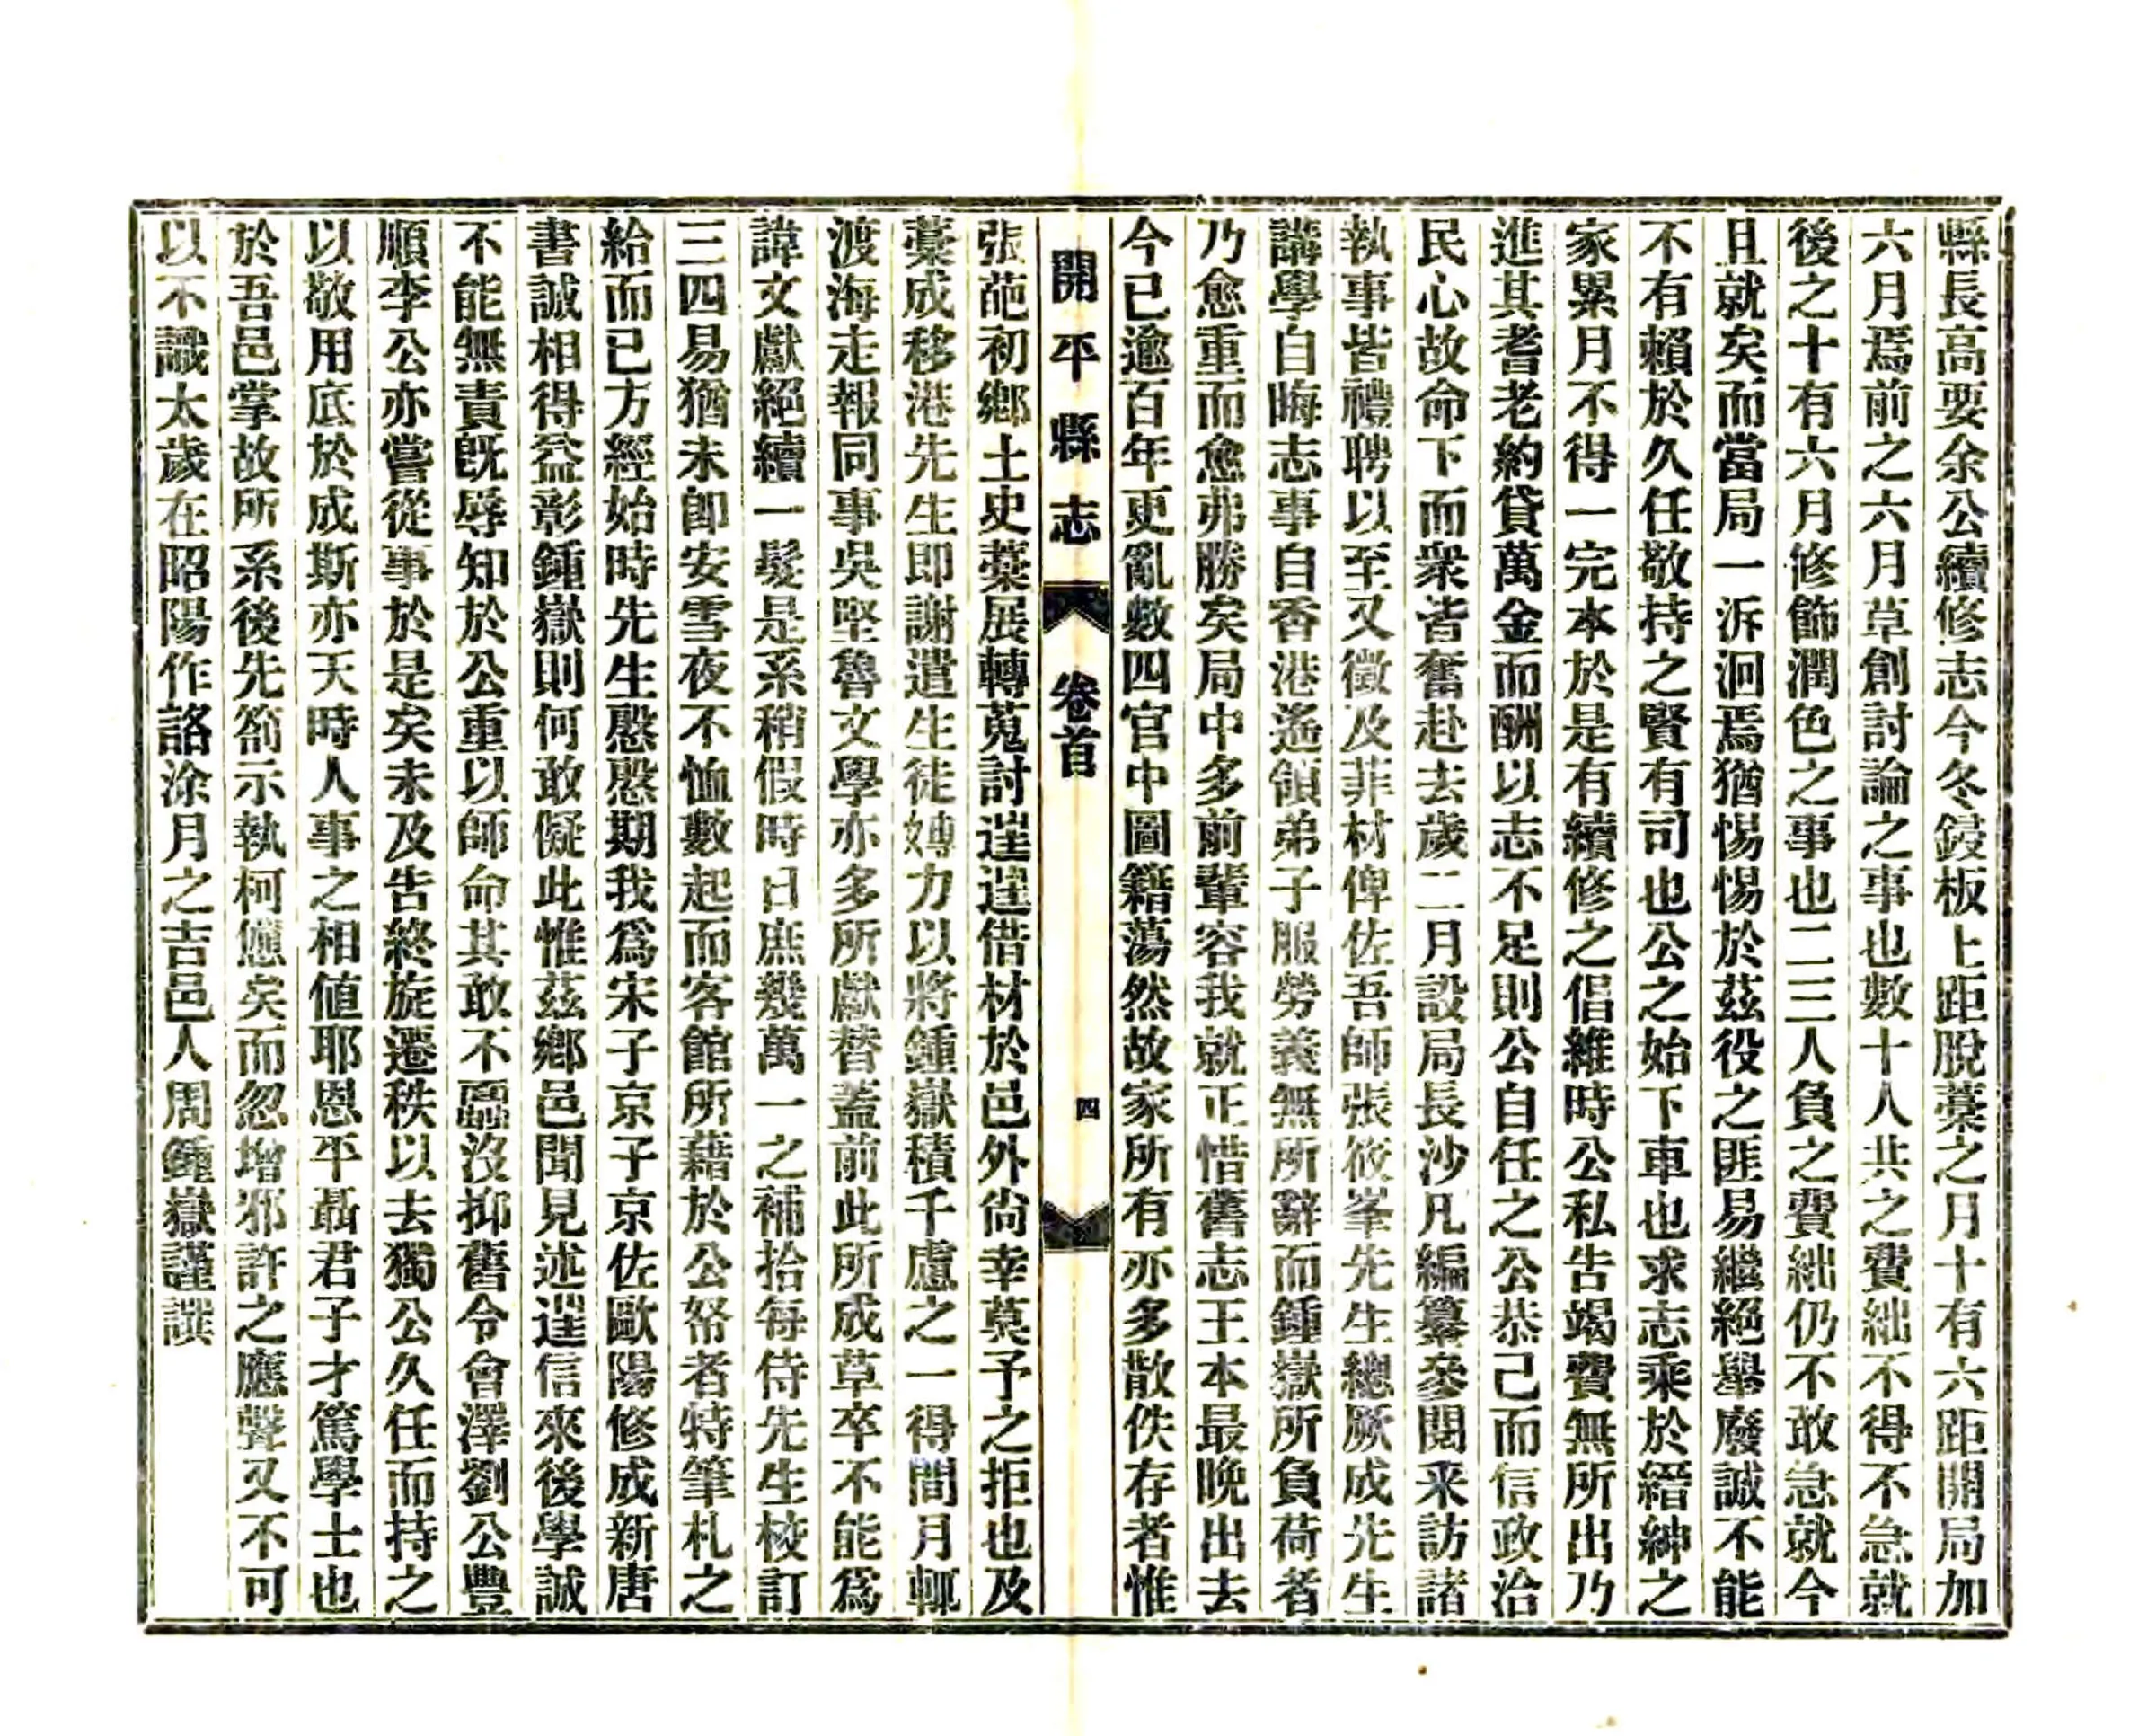 縣長高要余公續修志今冬鋟板上距脫藁之月十有六距開局加
六月焉前之六月草創討論之事也數十人共之費絀不得不急就
後之十有六月修飾潤色之事也二三人負之費絀仍不敢急就今
且就矣而當局一泝洄焉猶惕惕於茲役之匪易繼絕舉廢誠不能
不有賴於久任敬持之賢有司也公之始下車也求志乘於縉紳之
家累月不得一完本於是有續修之倡維時公私告竭費無所出乃
進其耆老約貸萬金而酬以志不足則公自任之公恭己而信政洽
民心故命下而衆皆奮赴去歲二月設局長沙凡編纂參閱采訪諸
執事皆禮聘以至又徵及菲材俾佐吾師張筱峯先生總厥成先生
講學自晦志事自香港遙領弟子服勞義無所辭而鍾嶽所負荷者
乃愈重而愈弗勝矣局中多前輩容我就正惜舊志王本最晚出去
今已逾百年更亂數四官中圖籍蕩然故家所有亦多散佚存者惟
開平縣志 卷首 四
張葩初鄉土史藁展轉蒐討遑遑借材於邑外尙幸莫予之拒也及
藁成移港先生即謝遣生徒嫥力以將鍾嶽積千慮之一得間月輒
渡海走報同事吳堅魯文學亦多所獻替蓋前此所成草卒不能爲
諱文獻絕續一髮是系稍假時日庶幾萬一之補拾每侍先生校訂
三四易猶未卽安雪夜不恤數起而客館所藉於公帑者特筆札之
給而已方經始時先生慇慇期我爲宋子京子京佐歐陽修成新唐
書誠相得益彰鍾嶽則何敢儗此惟茲鄉邑聞見述遑信來後學誠
不能無責旣辱知於公重以師命其敢不黽沒抑舊令會澤劉公豐
順李公亦嘗從事於是矣未及告終旋遷秩以去獨公久任而持之
以敬用底於成斯亦天時人事之相値耶恩平聶君子才篤學士也
於吾邑掌故所系後先箚示執柯憊矣而忽增邪許之應聲又不可
以不識太歲在昭陽作詻涂月之吉邑人周鍾嶽謹譔